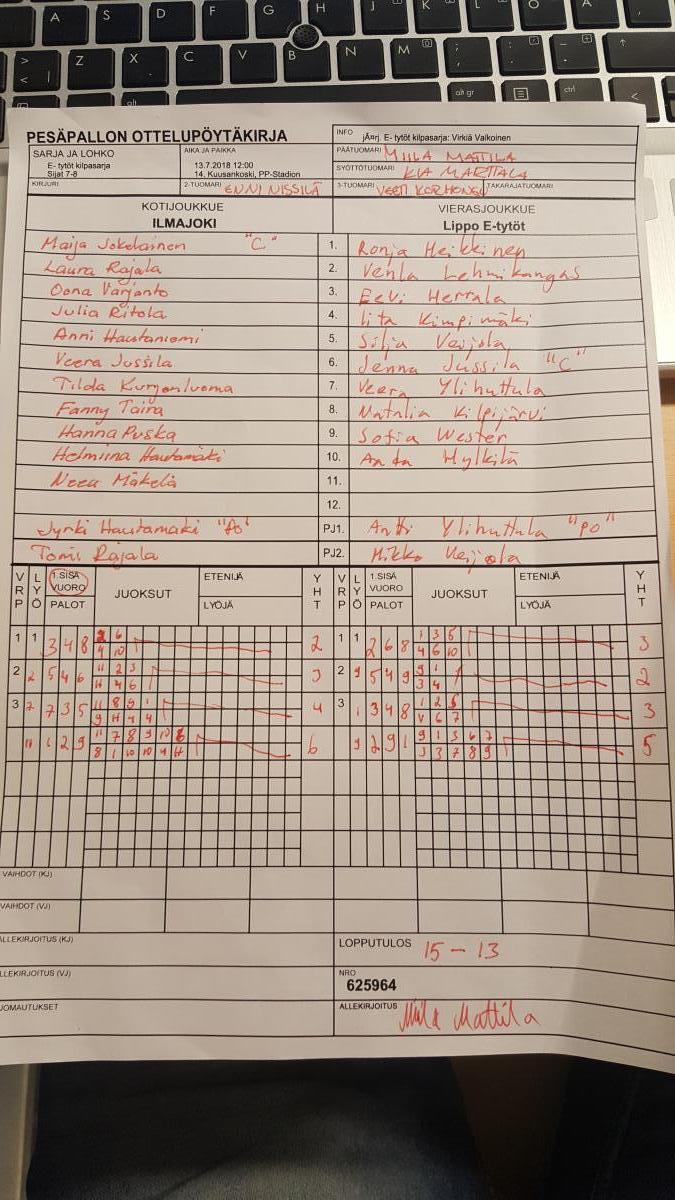 A S D F G H J K L
> < | Z X C V B N M ; , : .
alt alt gr ctrl
PESÄPALLON OTTELUPÖYTÄKIRJA
INFO jÄ¤rj. E- tytöt kilpasarja: Virkiä Valkoinen
SARJA JA LOHKO
E- tytöt kilpasarja
Sijat 7-8
AIKA JA PAIKKA
13.7.2018 12:00
14, Kuusankoski, PP-Stadion
PÄÄTUOMARI MIILA MATTILA
SYÖTTÖTUOMARI KIA MARTTALA
KIRJURI 2-TUOMARI ENNI NISSILÄ 3-TUOMARI VEETI KORHONEN TAKARAJATUOMARI
KOTIJOUKKUE
ILMAJOKI
VIERASJOUKKUE
Lippo E-tytöt
Maija Jokelainen "C" 1. Ronja Heikkinen
Laura Rajala 2. Venla Lehmikangas
Oona Varjonto 3. Eevi Hertala
Julia Ritola 4. Iita Kimpimäki
Anni Hautaniemi 5. Silja Veijola
Veera Jussila 6. Jenna Jussila "C"
Tilda Kurjenluoma 7. Veera Ylihuttula
Fanny Taira 8. Natalia Kilpijärvi
Hanna Puska 9. Sofia Wester
Helmiina Hautamäki 10. Anda Hylkilä
Neea Mäkelä 11.
12.
Jyrki Hautamäki PJ1. Antti Ylihuttula "PO"
Tomi Rajala PJ2. Mikko Veijola
VRP LYÖ 1.SISÄ VUORO PALOT JUOKSUT ETENIJÄ LYÖJÄ YHT VRP LYÖ 1.SISÄ VUORO PALOT JUOKSUT ETENIJÄ LYÖJÄ YHT
1 1 3 4 8 2 6 2 1 1 2 6 8 1 3 5 3
4 10 4 6 10
2 2 5 4 6 11 2 3 3 2 9 5 4 9 9 1 2
H 4 6 3 4
3 7 7 3 5 11 8 9 1 4 3 1 3 4 8 1 2 5 3
9 H 4 4 V 6 7
11 1 2 9 11 7 8 9 10 6 6 9 2 9 1 9 1 5 6 7 5
8 1 10 10 4 H 3 3 7 8 9
VAIHDOT (KJ)
VAIHDOT (VJ)
ALLEKIRJOITUS (KJ) LOPPUTULOS 15 - 13
ALLEKIRJOITUS (VJ) NRO
625964
HUOMAUTUKSET ALLEKIRJOITUS Miila Mattila